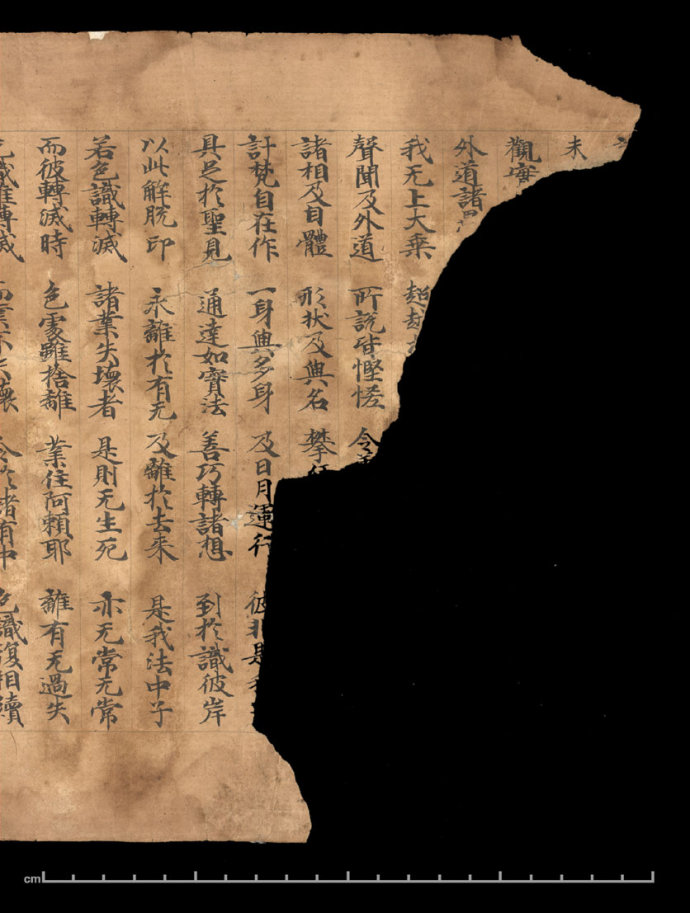 未
觀察
外道諸
我无上大乘 超越
聲聞及外道 所說皆慳悋 令
諸相及自體 形狀及與名 攀
計梵自在作 一身與多身 及日月運行 彼非是
具足於聖見 通達如實法 善巧轉諸想 到於識彼岸
以此解脫印 永離於有无 及離於去來 是我法中子
若色識轉滅 諸業失壞者 是則无生死 亦无常无常
而彼轉滅時 色處雖捨離 業住阿賴耶 離有无過失
色識雖轉滅 而業不失壞 令於諸有中 色識復相續
cm